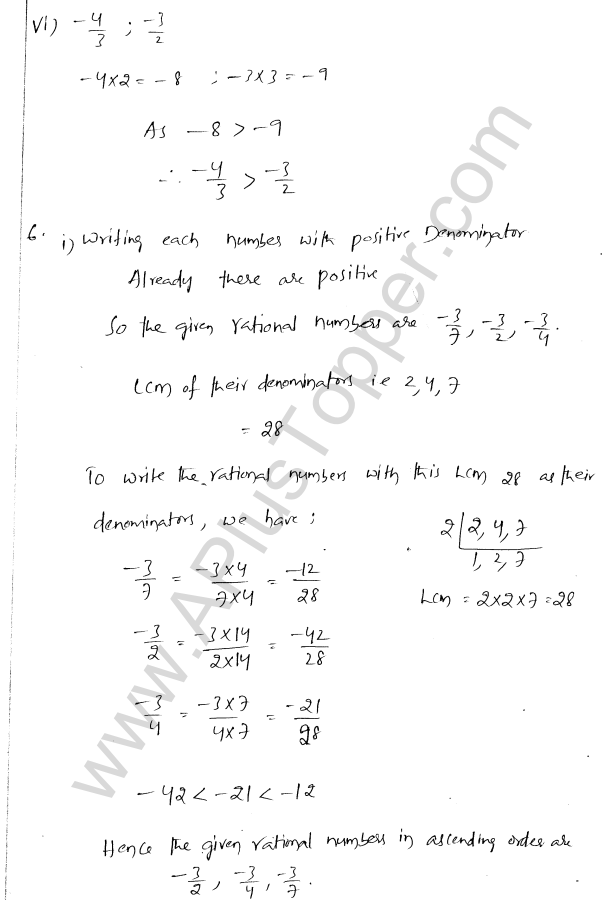 VI) -4/3 ; -3/2
-4×2 = -8 ; -3×3 = -9
As -8 > -9
∴ -4/3 > -3/2
6. i) Writing each number with positive Denominator
Already there are positive
So the given rational numbers are -3/7, -3/2, -3/4.
LCM of their denominators ie 2,4,7
= 28
To write the rational numbers with this LCM 28 as their
denominators, we have;
2 | 2, 4, 7
1, 2, 7
LCM = 2×2×7 = 28
-3/7 = -3×4/7×4 = -12/28
-3/2 = -3×14/2×14 = -42/28
-3/4 = -3×7/4×7 = -21/28
-42 < -21 < -12
Hence the given rational numbers in ascending order are
-3/2, -3/4, -3/7.
www.APlusTopper.com